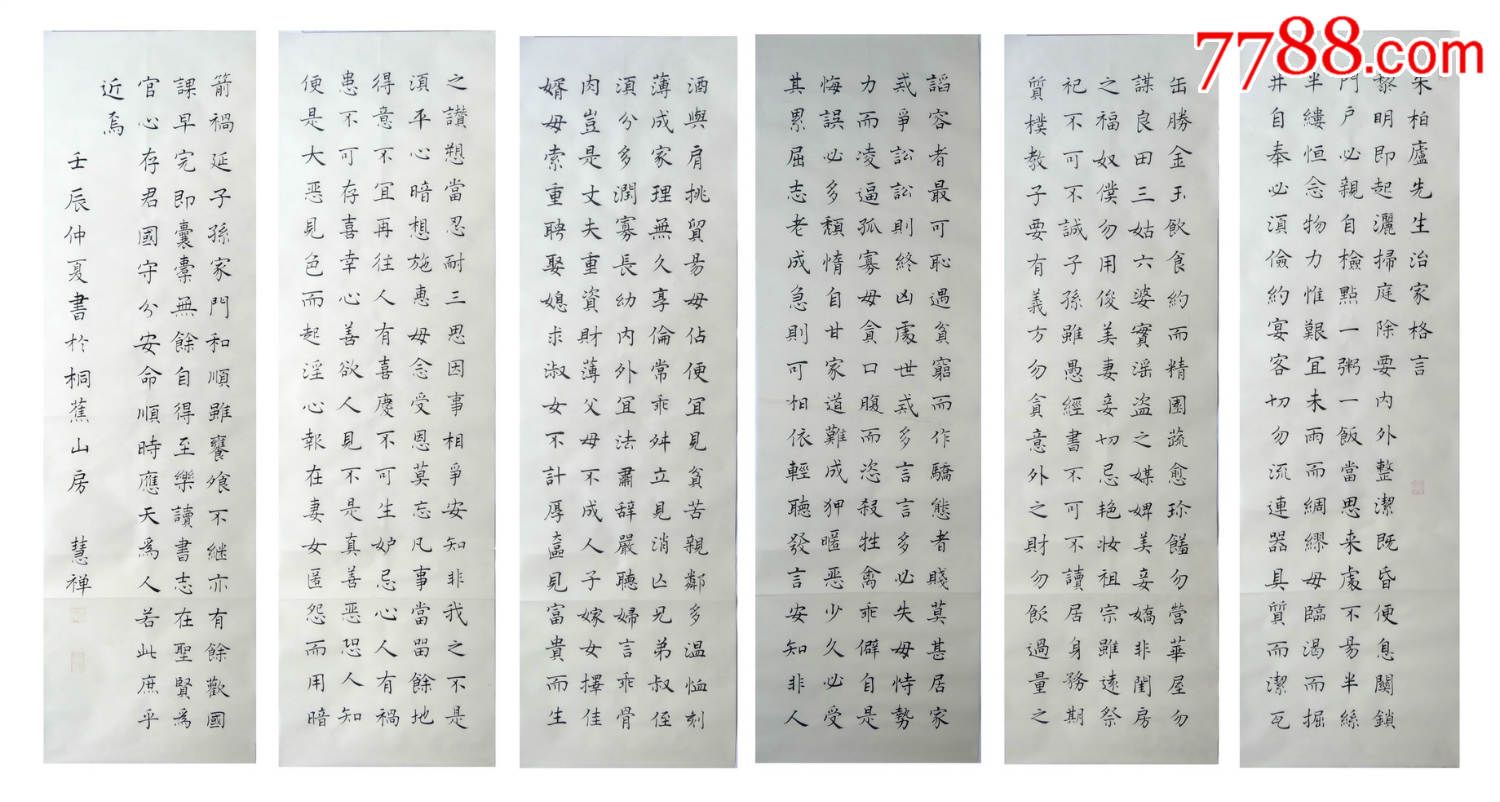 7788.com
朱柏廬先生治家格言
黎明即起灑掃庭除要内外整潔既昏便息關鎖
門戶必親自檢點一粥一飯當思来處不易半絲
半縷恒念物力惟艱宜未雨而綢繆毋臨渴而掘
井自奉必須儉約宴客切勿流連器具質而潔瓦
缶勝金玉飲食約而精園蔬愈珍饈勿營華屋勿
謀良田三姑六婆實淫盜之媒婢美妾嬌非閨房
之福奴僕勿用俊美妻妾切忌艳妝祖宗雖遠祭
祀不可不誠子孫雖愚經書不可不讀居身務期
質樸教子要有義方勿貪意外之財勿飲過量之
諂容者最可恥遇貧窮而作驕態者賤莫甚居家
戒爭訟訟則終凶處世戒多言言多必失毋恃勢
力而凌逼孤寡毋貪口腹而恣殺牲禽乖僻自是
悔誤必多頹惰自甘家道難成狎暱惡少久必受
其累屈志老成急則可相依輕聽發言安知非人
酒與肩挑貿易毋佔便宜見貧苦親鄰多温恤刻
薄成家理無久享倫常乖舛立見消亡兄弟叔侄
須分多潤寡長幼内外宜法肅辞嚴聽婦言乖骨
肉豈是丈夫重資財薄父母不成人子嫁女擇佳
婿毋索重聘娶媳求淑女不計厚奩見富貴而生
之譖愬當忍耐三思因事相爭安知非我之不是
須平心暗想施惠毋念受恩莫忘凡事當留餘地
得意不宜再往人有喜慶不可生妒忌心人有禍
患不可存喜幸心善欲人見不是真善恶恐人知
便是大恶見色而起淫心報在妻女匿怨而用暗
箭禍延子孫家門和順雖饔飧不继亦有餘歡國
課早完即囊橐無餘自得至樂讀書志在聖賢爲
官心存君國守分安命順時應天爲人若此庶乎
近焉
壬辰仲夏書於桐蕉山房 慧禅